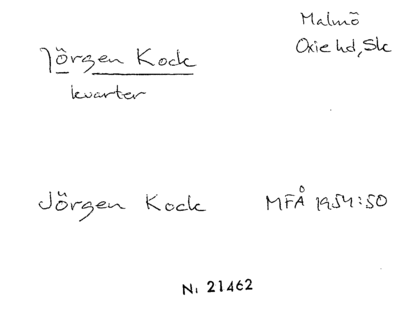 Malmö
Oxie hd, Sk
Jörgen Kock
kvarter
Jörgen Kock MFÅ 1954:50
Ni 21462